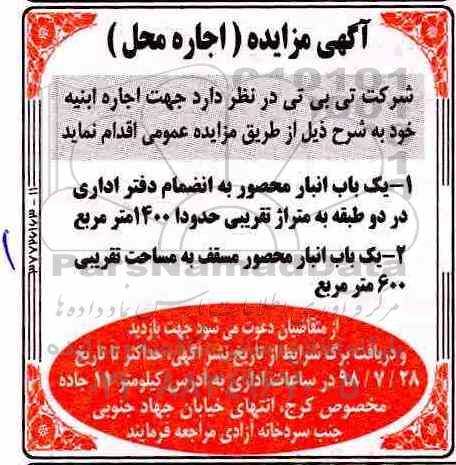 آگهی مزایده ( اجاره محل )
شرکت تی بی تی در نظر دارد جهت اجاره ابنیه
خود به شرح ذیل از طریق مزایده عمومی اقدام نماید
۱-یک باب انبار محصور به انضمام دفتر اداری
در دو طبقه به متراژ تقریبی حدودا ۱۴۰۰متر مربع
۲-یک باب انبار محصور مسقف به مساحت تقریبی
۶۰۰ متر مربع
از متقاضیان دعوت می شود جهت بازدید
و دریافت برگ شرایط از تاریخ نشر آگهی، حداکثر تا تاریخ
۹۸/۷/۲۸ در ساعات اداری به آدرس کیلومتر ۱۱ جاده
مخصوص کرج، انتهای خیابان جهاد جنوبی
جنب سردخانه آزادی مراجعه فرمایند
ParsNamadData